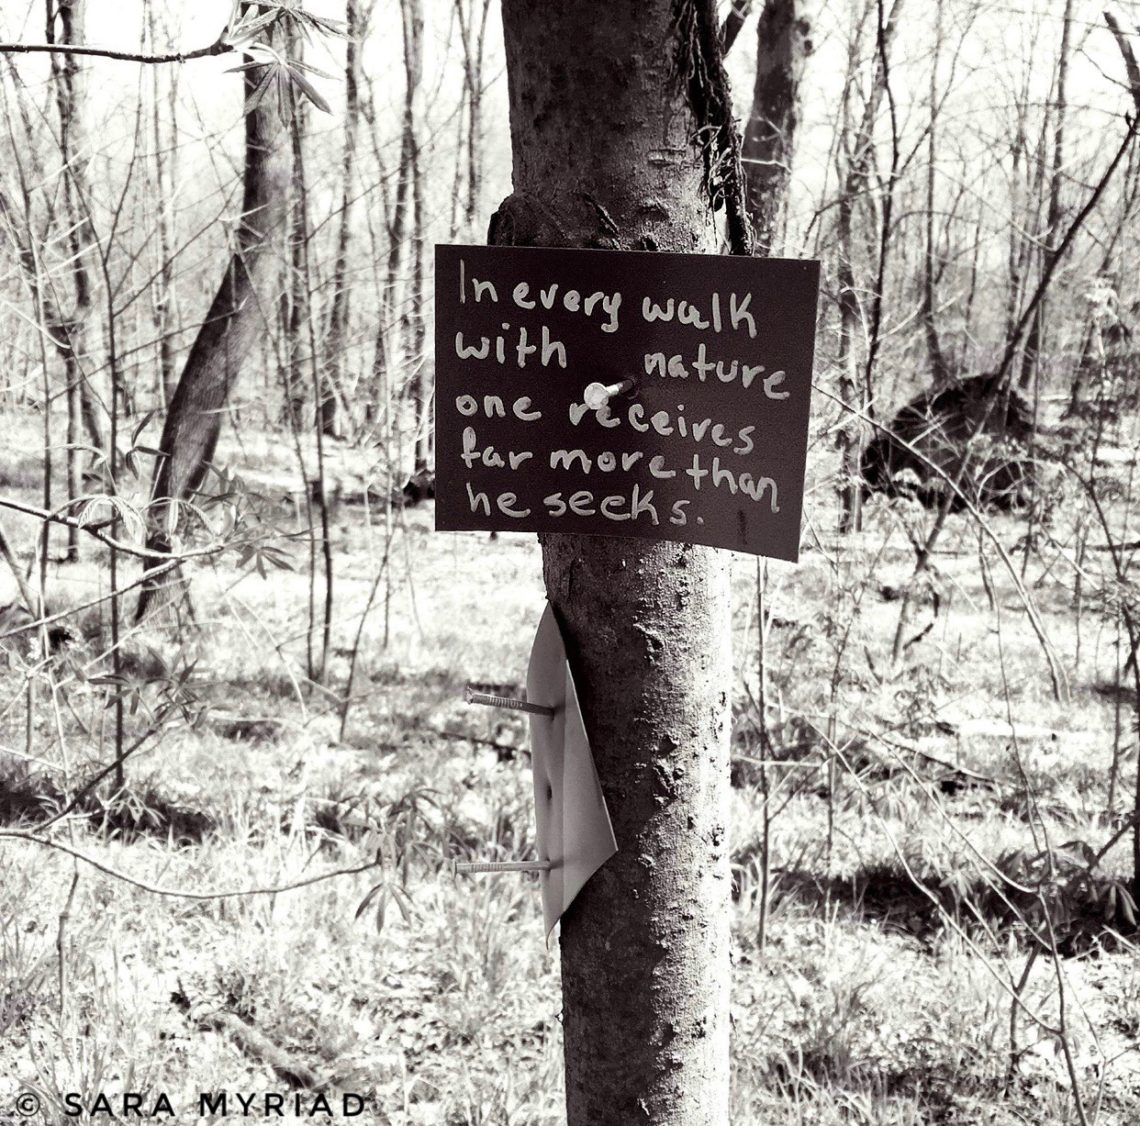 In every walk
with nature
one receives
far more than
he seeks.
© SARA MYRIAD